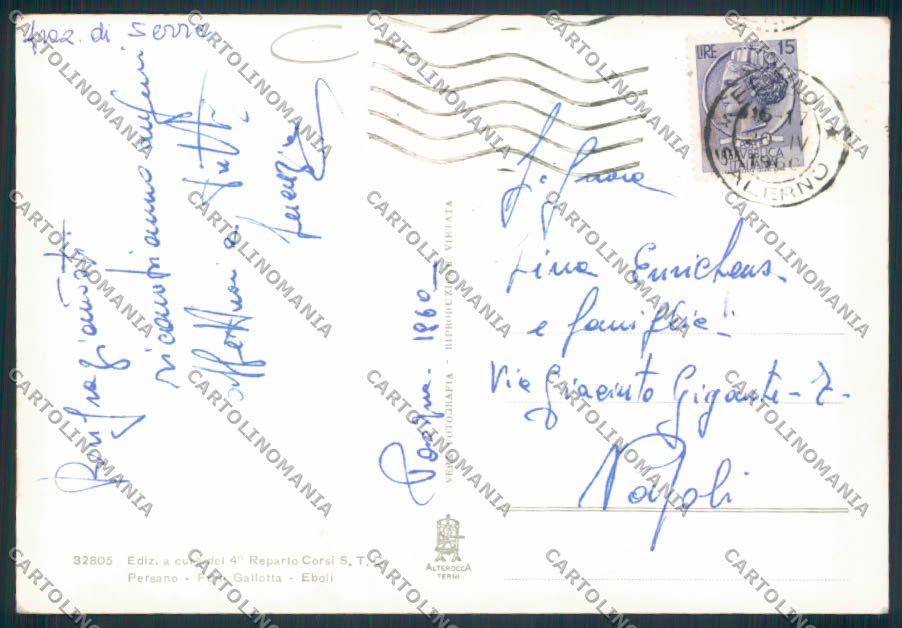 fraz. di Serre
Ringraziando
ricambiamo auguri
affettuosi a tutti
Pasqua. 1960
Signora
Lina
e famiglia
Via Giacinto Gigante - 7 -
Napoli
LIRE 15
SALERNO
VERA FOTOGRAFIA - RIPRODUZIONE VIETATA
32805 Ediz. a cura del 4° Reparto Corsi S. T.
Persano - Gallotta - Eboli
ALTEROCCA
TERNI
CARTOLINOMANIA